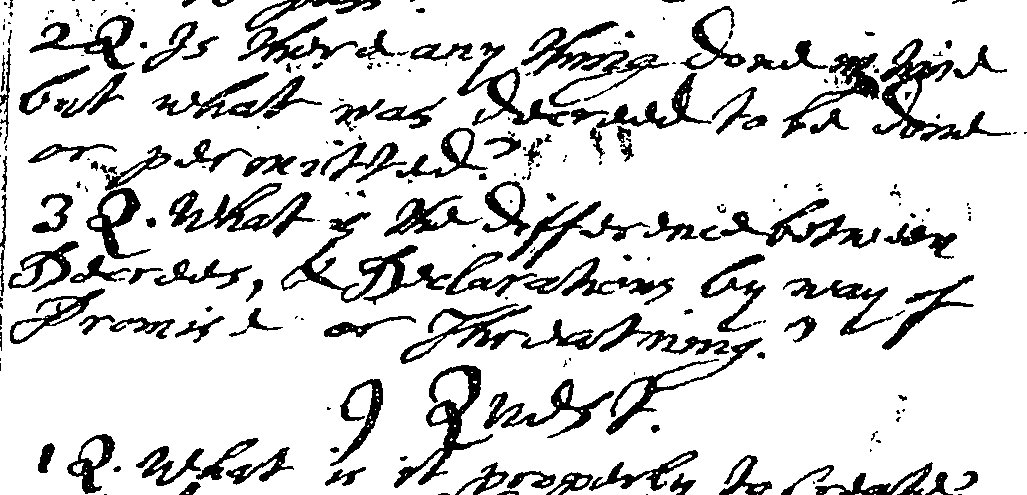 2 Q. Is there any thing done in time
but what was decreed to be done
or permitted?
3 Q. What is the difference between
Decrees, & Declarations by way of
Promise or Threatning?
9 Quest.
1 Q. What is it properly to Create?